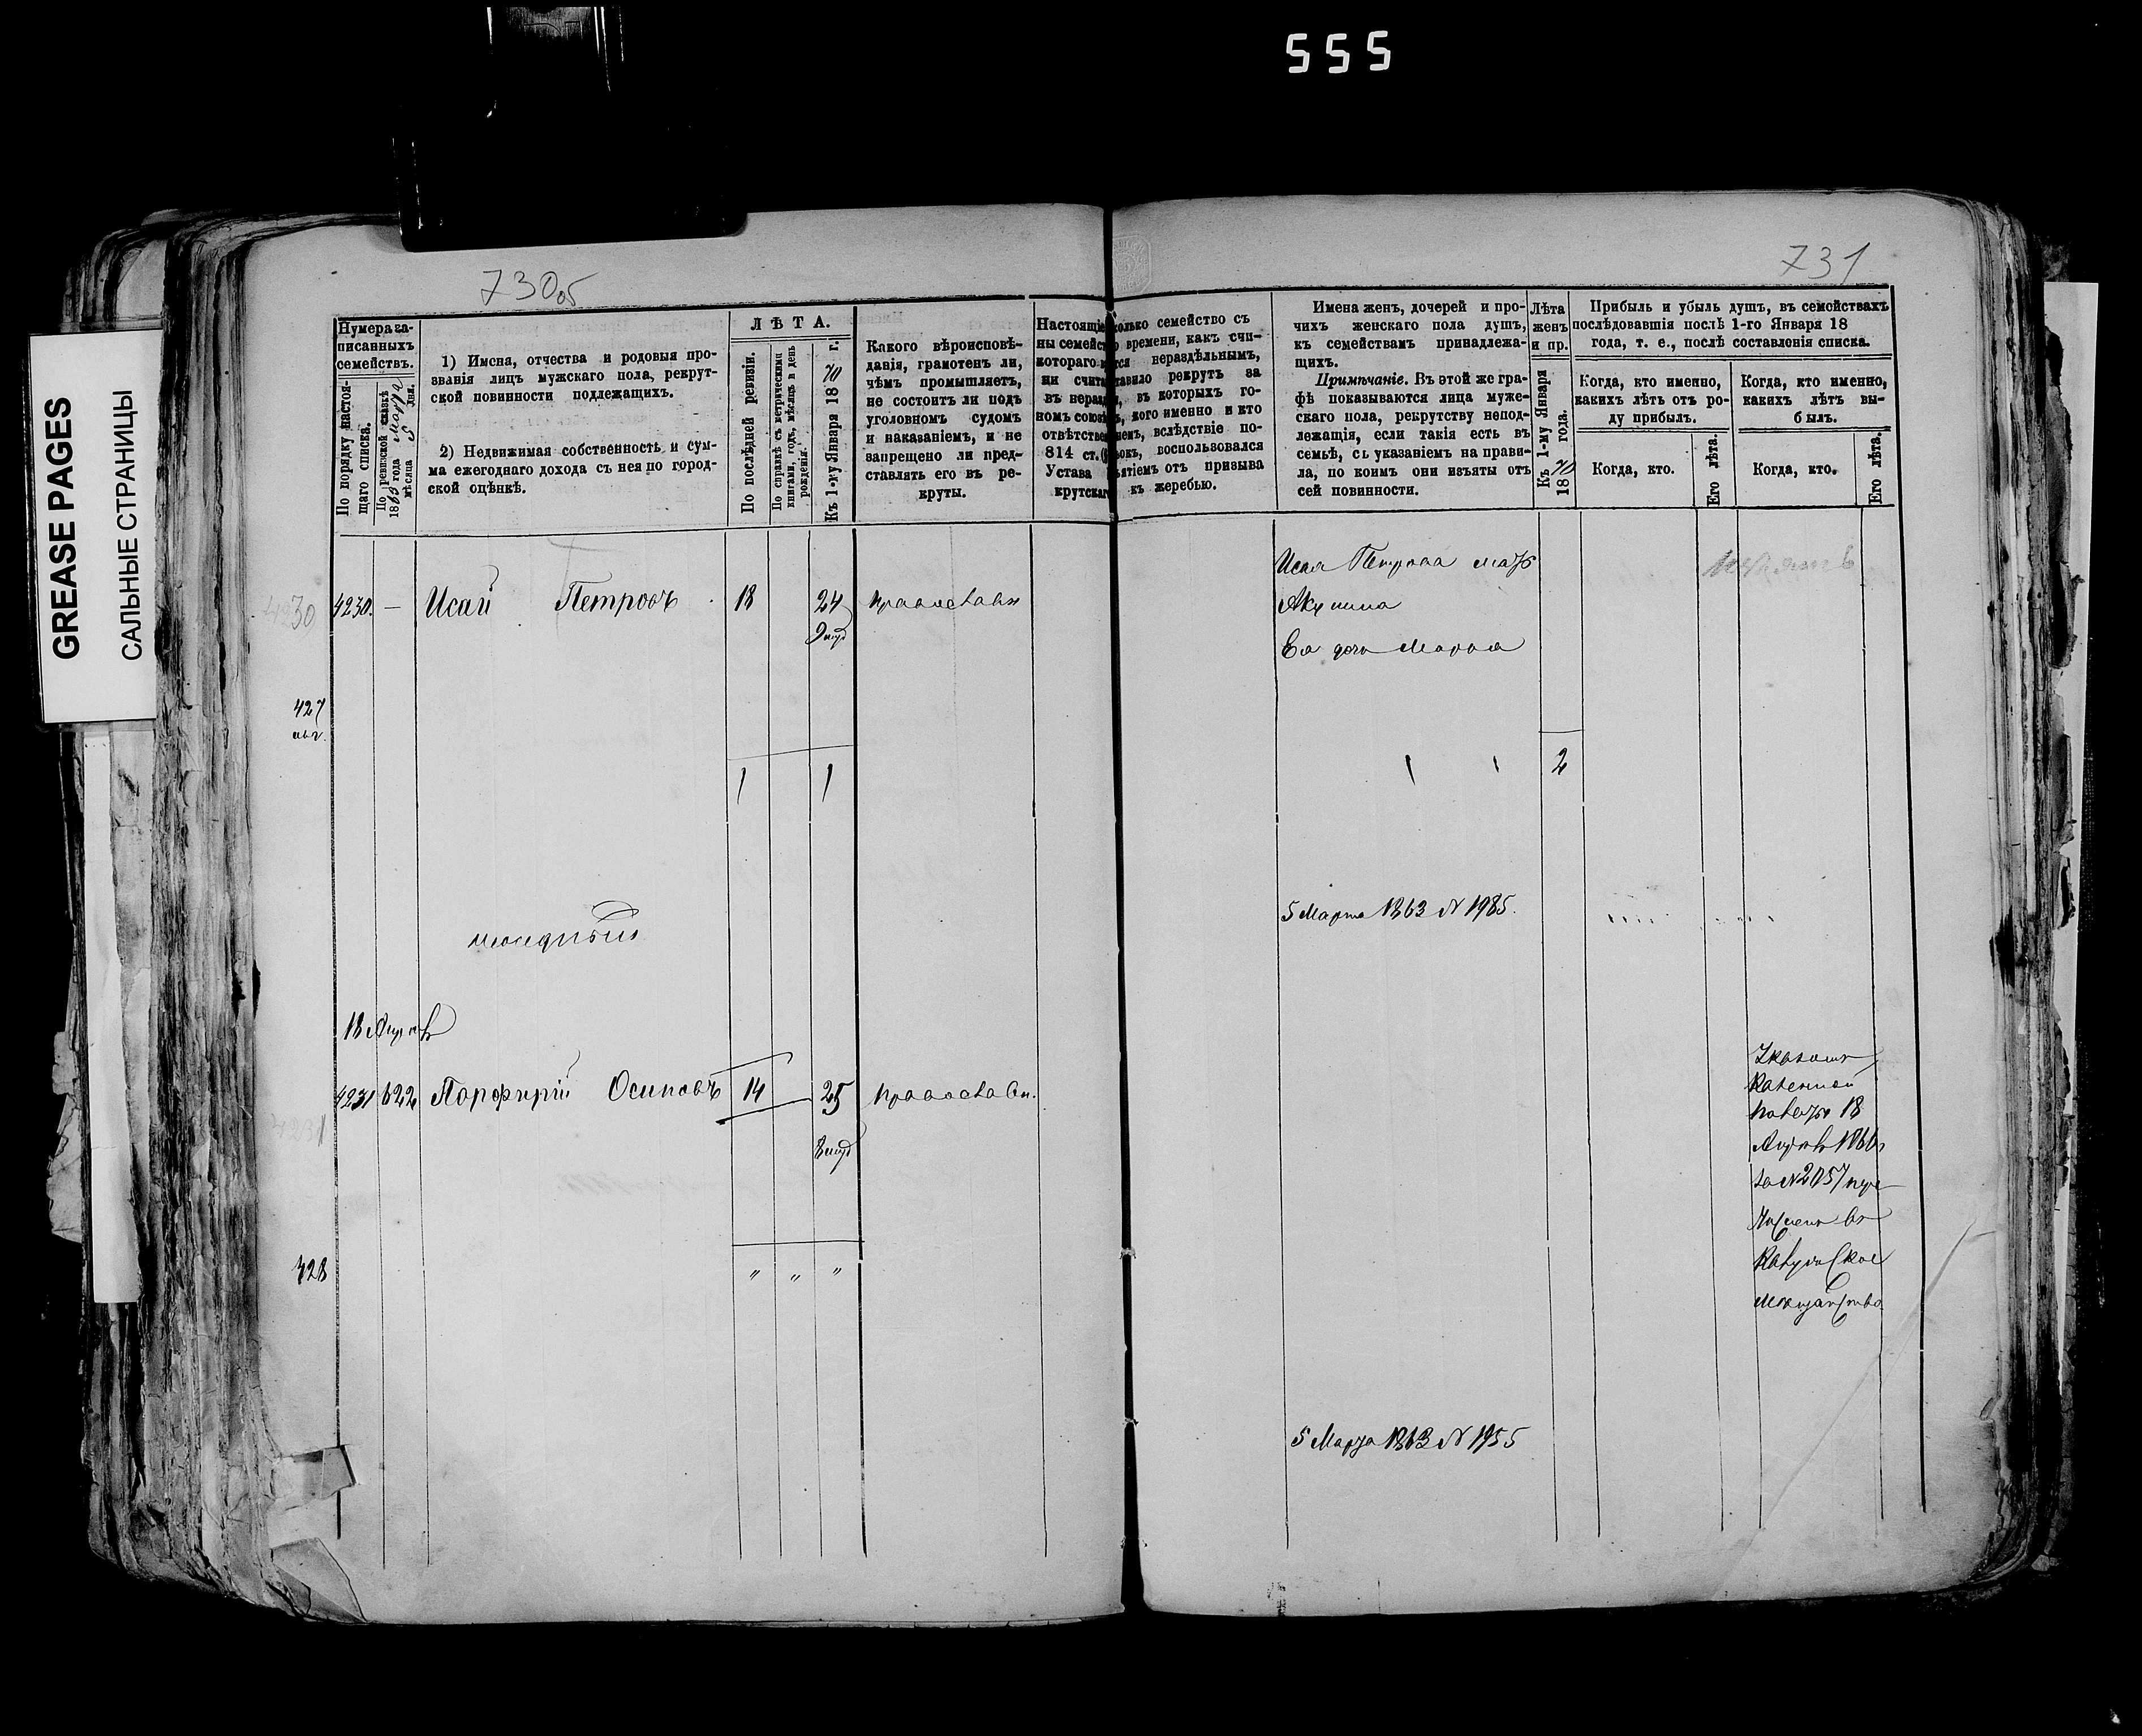 555
GREASE PAGES
САЛЬНЫЕ СТРАНИЦЫ
730об
731
Нумера за-
писанныхъ
семействъ.
По порядку настоя-
щаго списка.
По ревизской сказкѣ
1863 года Марта
мѣсяца 5 дня.
1) Имена, отчества и родовыя про-
званія лицъ мужскаго пола, рекрут-
ской повинности подлежащихъ.
2) Недвижимая собственность и сум-
ма ежегоднаго дохода съ нея по город-
ской оцѣнкѣ.
ЛѢТА.
По послѣдней ревизіи.
По справкѣ съ метрическими
книгами, годъ, мѣсяцъ и день
рожденія.
Къ 1-му Января 1870 г.
Какого вѣроисповѣ-
данія, грамотенъ ли,
чѣмъ промышляетъ,
не состоитъ ли подъ
уголовномъ судомъ
и наказаніемъ, и не
запрещено ли пред-
ставлять его въ ре-
круты.
Настоящіе
ны семейст
котораго
ни счита
въ нераз
номъ союз
отвѣтстве
814 ст.
Устава
крутскаг
колько семейство съ
времени, какъ счи-
тся нераздѣльнымъ,
тавило рекрутъ за
въ которыхъ го-
кого именно и кто
вслѣдствіе по-
воспользовался
зятіемъ отъ призыва
къ жеребью.
Имена женъ, дочерей и про-
чихъ женскаго пола душъ,
къ семействамъ принадлежа-
щихъ.
Примѣчаніе. Въ этой же гра-
фѣ показываются лица муже-
скаго пола, рекрутству непод-
лежащія, если такія есть въ
семьѣ, съ указаніемъ на прави-
ла, по коимъ они изъяты отъ
сей повинности.
Лѣта
женъ
и пр.
Къ 1-му Января
1870 года.
Прибыль и убыль душъ, въ семействахъ
послѣдовавшія послѣ 1-го Января 18
года, т. е., послѣ составленія списка.
Когда, кто именно,
какихъ лѣтъ отъ ро-
ду прибылъ.
Когда, кто именно,
какихъ лѣтъ вы-
былъ.
Когда, кто.
Его лѣта.
Когда, кто.
Его лѣта.
4230
4230. — Исай Петровъ 18 24 православн
Исая Петрова мать
Акулина
Ея дочь Марья
427
1 1
2
5 Марта 1863 N 1985.
18 Апрѣля
4231 622 Порфирій Осиповъ 14 25 православн.
4231
Указомъ
Казенной
палаты 18
Апрѣля 1866
за N 2057 пере
численъ въ
Мещанство
428
" " "
5 Марта 1863 N 1955